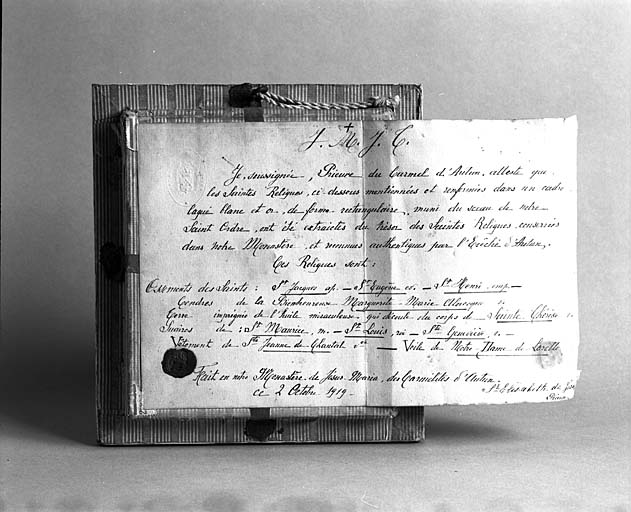 J. M. J. T.
Je soussignée, Prieure du Carmel d'Autun, atteste que
les Saintes Reliques, ci-dessous mentionnées et renfermées dans un cadre
laqué blanc et or, de forme rectangulaire, muni du sceau de notre
Saint Ordre, ont été extraites du trésor des Saintes Reliques conservées
dans notre Monastère et reconnues authentiques par l'Evêché d'Autun.
Ces Reliques sont :
Ossements des Saints : St Jacques ap. - St Eugène ev. - St Henri emp. -
Cendres de la Bienheureuse Marguerite-Marie Alacoque v.
Terre imprégnée de l'huile miraculeuse qui découle du corps de Sainte Thérèse v.
Suaires de : St Maurice, m. - St Louis, roi - Ste Geneviève v. -
Vêtement de Ste Jeanne de Chantal - Voile de Notre Dame de Lorette
Fait en notre Monastère de Jésus Maria, des Carmélites d'Autun
ce 2 Octobre 1919.
Sr Elisabeth de
Prieure